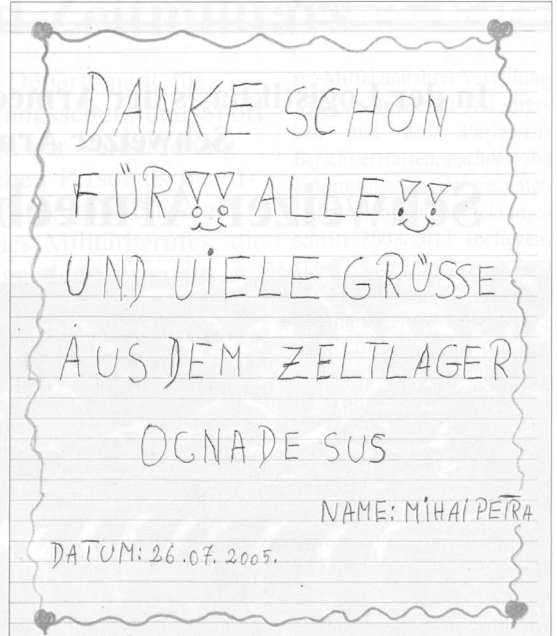 DANKE SCHON
FÜR ALLE
UND UIELE GRÜSSE
AUS DEM ZELTLAGER
OCNA DE SUS
NAME: MIHAI PETRA
DATUM: 26.07.2005.